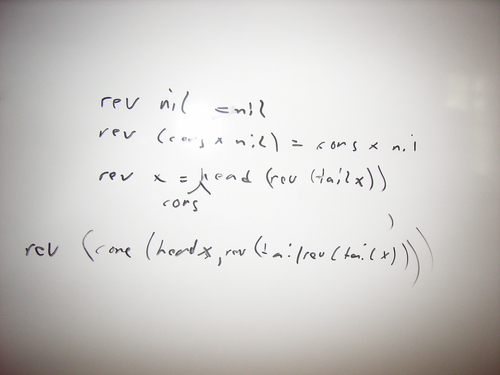 rev nil = nil
rev (cons x nil) = cons x nil
rev x = head (rev (tail x))
cons
)
rev (cons (head x, rev (tail rev (tail x))))